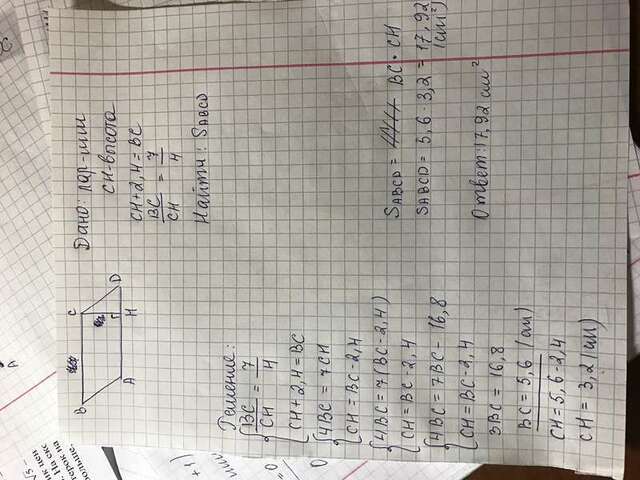 B
C
A
H
D
Дано: пар-мм
CH-высота
CH+2,4=BC
BC/CH = 7/4
Найти: SABCD
Решение:
BC/CH = 7/4
CH+2,4=BC
4BC = 7CH
CH=BC-2,4
4BC=7(BC-2,4)
CH=BC-2,4
4BC=7BC-16,8
CH=BC-2,4
3BC=16,8
BC=5,6 (см)
CH=5,6-2,4
CH = 3,2 (см)
SABCD = BC·CH
SABCD = 5,6·3,2 = 17,92
(см²)
Ответ: 17,92 см²